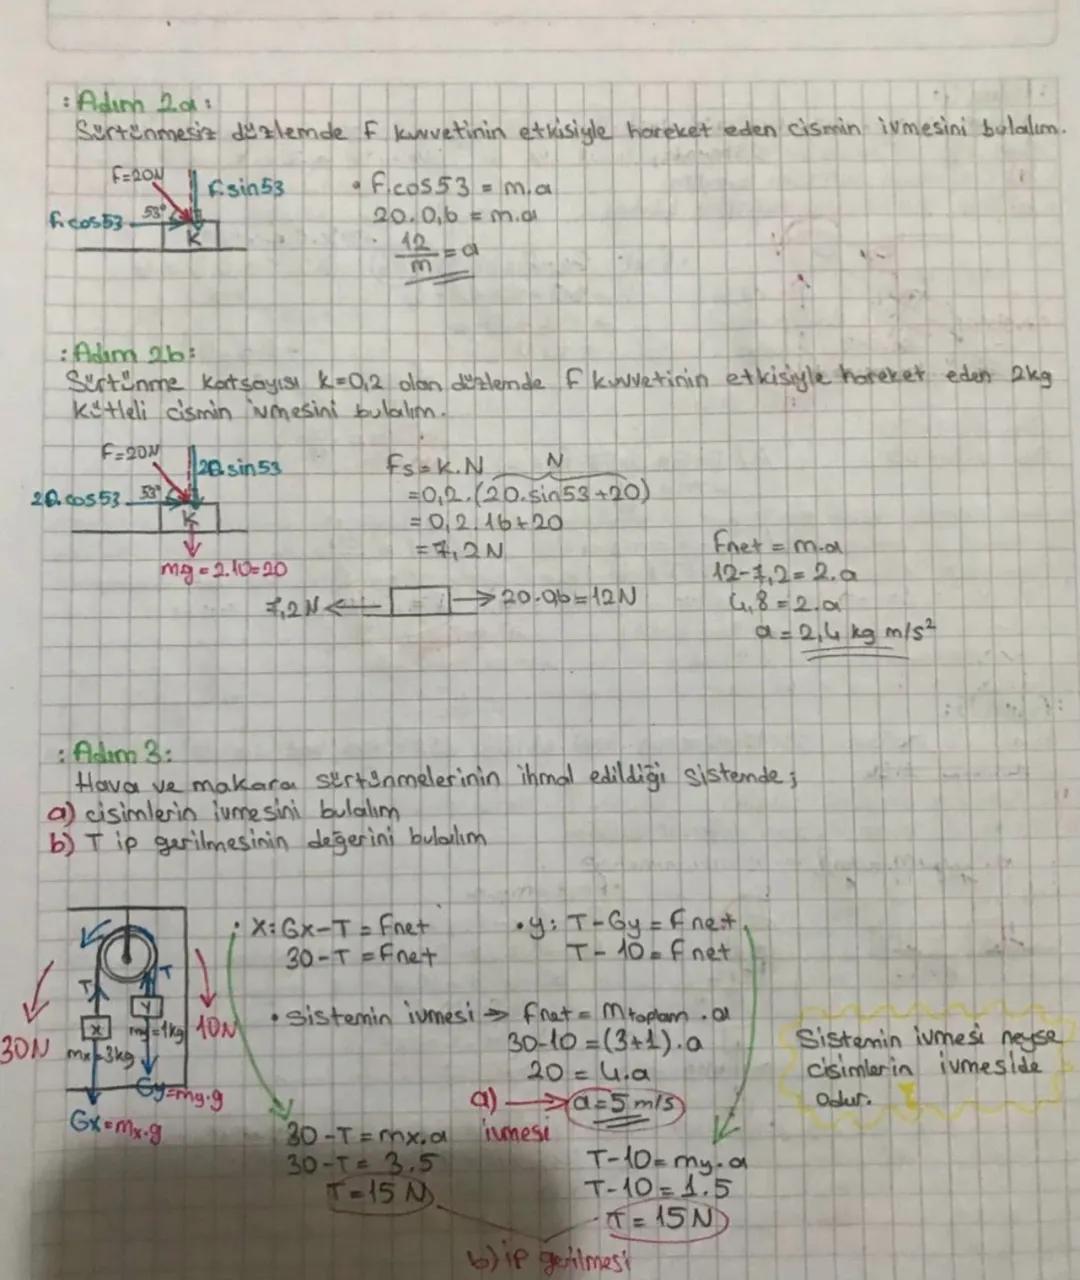 : Adım 2a:
Sürtünmesiz düzlemde F kuvvetinin etkisiyle hareket eden cismin ivmesini bulalım.
F=20N
F.sin53
F.cos53
53°
K
• F.cos53 = m.a
20.0,6 = m.a
12/m = a
: Adım 2b:
Sürtünme katsayısı k=0,2 olan düzlemde F kuvvetinin etkisiyle hareket eden 2kg
kütleli cismin ivmesini bulalım.
F=20N
20.sin53
20.cos53
53°
K
mg=2.10=20
Fs=k.N
N
=0,2.(20.sin53+20)
=0,2.16+20
=7,2N
7,2N
20.0,6=12N
Fnet = m.a
12-7,2=2.a
4,8=2.a
a=2,4 kg m/s²
: Adım 3:
Hava ve makara sürtünmelerinin ihmal edildiği sistemde;
a) cisimlerin ivmesini bulalım
b) T ip gerilmesinin değerini bulalım
T
T
X
Y
30N
mx=3kg
my=1kg
10N
Gy=my.g
Gx=mx.g
• X: Gx-T = Fnet
30-T = Fnet
• y: T-Gy = Fnet
T-10 = Fnet
• Sistemin ivmesi → Fnet = mtoplam.a
30-10=(3+1).a
20=4.a
a) → a=5 m/s
ivmesi
Sistemin ivmesi neyse
cisimlerin ivmeside
odur.
30-T=mx.a
30-T=3.5
T=15 N
T-10=my.a
T-10=1.5
T=15N
b) ip gerilmesi